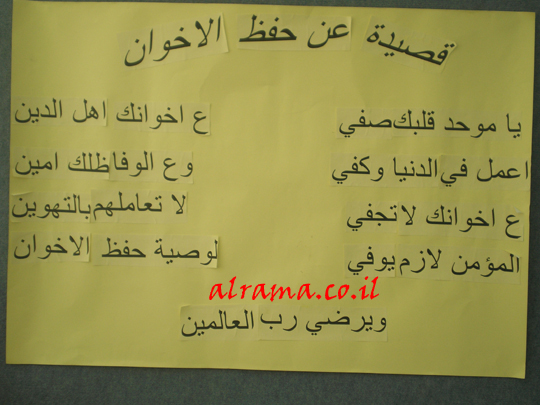 قصيدة عن حفظ الاخوان
يا موحد قلبك صفي ع اخوانك اهل الدين
اعمل في الدنيا وكفي وع الوفا ظلك امين
ع اخوانك لا تجفي لا تعاملهم بالتهوين
المؤمن لازم يوفي لوصية حفظ الاخوان
alrama.co.il
ويرضي رب العالمين